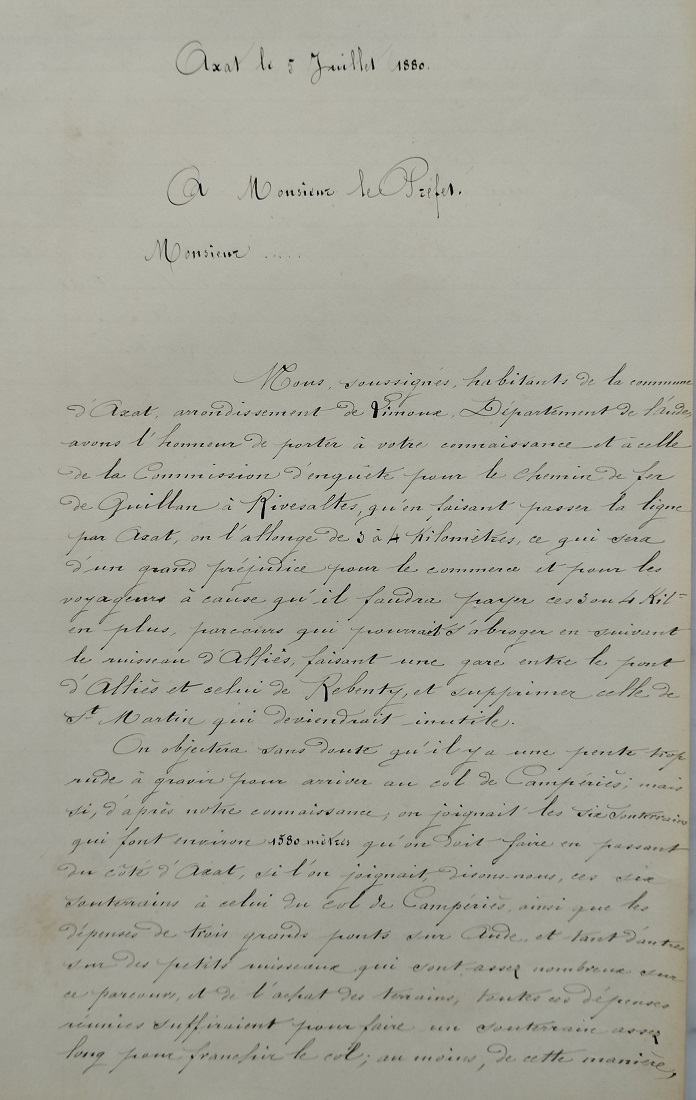 Axat le 5 Juillet 1880.
A Monsieur le Préfet.
Monsieur .....
Nous, soussignés, habitants de la commune
d'Axat, arrondissement de Limoux, Département de l'aude,
avons l'honneur de porter à votre connaissance et à celle
de la Commission d'enquête pour le chemin de fer
de Quillan à Rivesaltes, qu'en faisant passer la ligne
par Axat, on l'allonge de 3 à 4 Kilomètres, ce qui sera
d'un grand préjudice pour le commerce et pour les
voyageurs à cause qu'il faudra payer ces 3 ou 4 Kil=
en plus, parcours qui pourrait s'abroger en suivant
le ruisseau d'Alliès, faisant une gare entre le pont
d'Alliès et celui de Rebenty, et supprimer celle de
St Martin qui deviendrait inutile.
On objectera sans doute qu'il y a une pente trop
rude à gravir pour arriver au col de Campériès; mais
si, d'après notre connaissance, on joignait les six souterrains
qui font environ 1580 mètres qu'on doit faire en passant
du côté d'Axat, si l'on joignait, disons-nous, ces six
souterrains à celui du col de Campériès, ainsi que les
dépenses de trois grands ponts sur Aude, et tant d'autres
sur des petits ruisseaux qui sont assez nombreux sur
ce parcours, et de l'achat des terrains, toutes ces dépenses
réunies suffiraient pour faire un souterrain assez
long pour franchir le col; au moins, de cette manière,